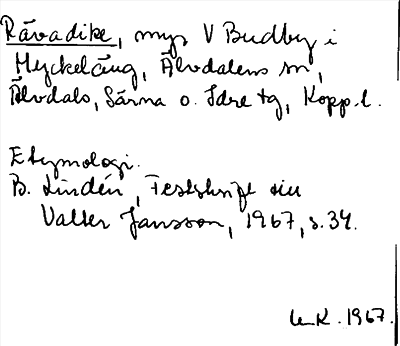 Rävadike, myr V Budby i
Myckeläng, Älvdalens sn,
Älvdals, Särna o. Idre tg, Kopp. l.
Etymologi.
B. Lindén, Festskrift till
Valter Jansson, 1967, s. 34.
1967.